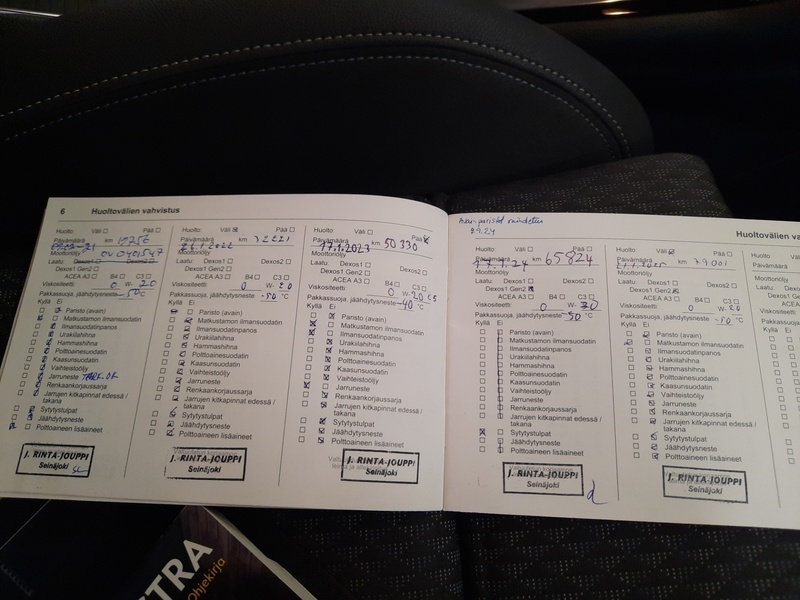 6 Huoltovälien vahvistus
Huolto Väli Pää
Päivämäärä km 19756
Moottoriöljy
Laatu: Dexos1 Dexos2
Dexos1 Gen2
ACEA A3 B4 C3
Viskositeetti 0 W- 20
Pakkassuoja, jäähdytysneste °C
Kyllä Ei
Paristo (avain)
Matkustamon ilmansuodatin
Ilmansuodatinpanos
Urakiilahihna
Hammashihna
Polttoainesuodatin
Kaasunsuodatin
Vaihteistoöljy
Jarruneste
Renkaankorjaussarja
Jarrujen kitkapinnat edessä /
takana
Sytytystulpat
Jäähdytysneste
Polttoaineen lisäaineet
J. RINTA-JOUPPI
Seinäjoki
Huolto Väli Pää
Päivämäärä km 32221
26.1.2022
Moottoriöljy
Laatu: Dexos1 Dexos2
Dexos1 Gen2
ACEA A3 B4 C3
Viskositeetti 0 W- 20
Pakkassuoja, jäähdytysneste -50 °C
Kyllä Ei
Paristo (avain)
Matkustamon ilmansuodatin
Ilmansuodatinpanos
Urakiilahihna
Hammashihna
Polttoainesuodatin
Kaasunsuodatin
Vaihteistoöljy
Jarruneste
Renkaankorjaussarja
Jarrujen kitkapinnat edessä /
takana
Sytytystulpat
Jäähdytysneste
Polttoaineen lisäaineet
J. RINTA-JOUPPI
Seinäjoki
Huolto Väli Pää
Päivämäärä km 50 330
17.1.2023
Moottoriöljy
Laatu: Dexos1 Dexos2
Dexos1 Gen2
ACEA A3 B4 C3
Viskositeetti 0 W- 20 C5
Pakkassuoja, jäähdytysneste -40 °C
Kyllä Ei
Paristo (avain)
Matkustamon ilmansuodatin
Ilmansuodatinpanos
Urakiilahihna
Hammashihna
Polttoainesuodatin
Kaasunsuodatin
Vaihteistoöljy
Jarruneste
Renkaankorjaussarja
Jarrujen kitkapinnat edessä /
takana
Sytytystulpat
Jäähdytysneste
Polttoaineen lisäaineet
J. RINTA-JOUPPI
Seinäjoki
Huoltovälien va
Huolto Väli Pää
Päivämäärä km 65824
Moottoriöljy
Laatu: Dexos1 Dexos2
Dexos1 Gen2
ACEA A3 B4 C3
Viskositeetti 0 W-
Pakkassuoja, jäähdytysneste -50 °C
Kyllä Ei
Paristo (avain)
Matkustamon ilmansuodatin
Ilmansuodatinpanos
Urakiilahihna
Hammashihna
Polttoainesuodatin
Kaasunsuodatin
Vaihteistoöljy
Jarruneste
Renkaankorjaussarja
Jarrujen kitkapinnat edessä /
takana
Sytytystulpat
Jäähdytysneste
Polttoaineen lisäaineet
J. RINTA-JOUPPI
Seinäjoki
Huolto Väli Pää
Päivämäärä km 77001
Moottoriöljy
Laatu: Dexos1 Dexos2
Dexos1 Gen2
ACEA A3 B4 C3
Viskositeetti 0 W- 20
Pakkassuoja, jäähdytysneste -50 °C
Kyllä Ei
Paristo (avain)
Matkustamon ilmansuodatin
Ilmansuodatinpanos
Urakiilahihna
Hammashihna
Polttoainesuodatin
Kaasunsuodatin
Vaihteistoöljy
Jarruneste
Renkaankorjaussarja
Jarrujen kitkapinnat edessä /
takana
Sytytystulpat
Jäähdytysneste
Polttoaineen lisäaineet
J. RINTA-JOUPPI
Seinäjoki
Huolto
Päivämäärä
Moottoriöljy
Laatu:
Viskositeetti
Pakkassuoja
Kyllä Ei
STRA
Ohjekirja